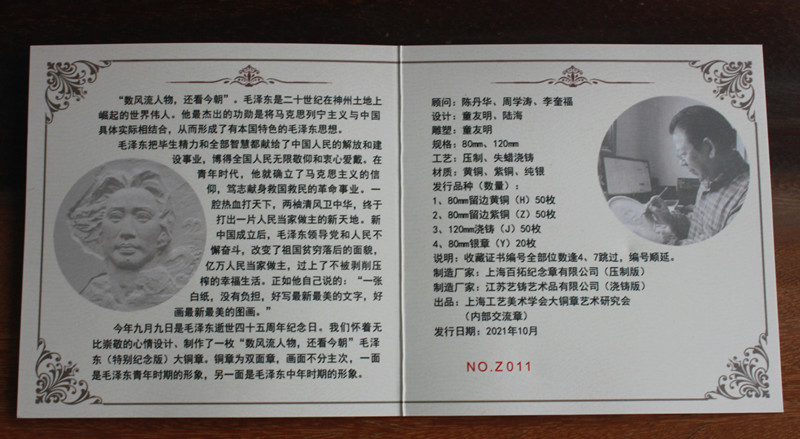 “数风流人物，还看今朝”。毛泽东是二十世纪在神州土地上
崛起的世界伟人。他最杰出的功勋是将马克思列宁主义与中国
具体实际相结合，从而形成了有本国特色的毛泽东思想。
毛泽东把毕生精力和全部智慧都献给了中国人民的解放和建
设事业，博得全国人民无限敬仰和衷心爱戴。在
青年时代，他就确立了马克思主义的信
仰，笃志献身救国救民的革命事业。一
腔热血打天下，两袖清风卫中华，终于
打出一片人民当家做主的新天地。新
中国成立后，毛泽东领导党和人民不
懈奋斗，改变了祖国贫穷落后的面貌，
亿万人民当家做主，过上了不被剥削压
榨的幸福生活。正如他自己说的：“一张
白纸，没有负担，好写最新最美的文字，好
画最新最美的图画。”
今年九月九是毛泽东逝世四十五周年纪念日。我们怀着无
比崇敬的心情设计、制作了一枚“数风流人物，还看今朝”毛泽
东（特别纪念版）大铜章。铜章为双面章，画面不分主次，一面
是毛泽东青年时期的形象，另一面是毛泽东中年时期的形象。
顾问：陈丹华、周学涛、李奎福
设计：童友明、陆海
雕塑：童友明
规格：80mm、120mm
工艺：压制、失蜡浇铸
材质：黄铜、紫铜、纯银
发行品种（数量）：
1、80mm留边黄铜（H）50枚
2、80mm留边紫铜（Z）50枚
3、120mm浇铸（J）50枚
4、80mm银章（Y）20枚
说明：收藏证书编号全部位数逢4、7跳过，编号顺延。
制造厂家：上海百拓纪念章有限公司（压制版）
制造厂家：江苏艺铸艺术品有限公司（浇铸版）
出品：上海工艺美术学会大铜章艺术研究会
（内部交流章）
发行日期：2021年10月
NO.Z011